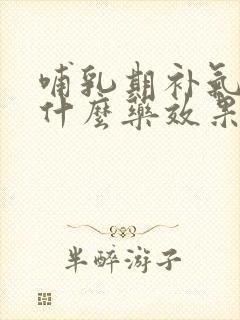 哺乳期补氣
什麼藥效果
半醉游子